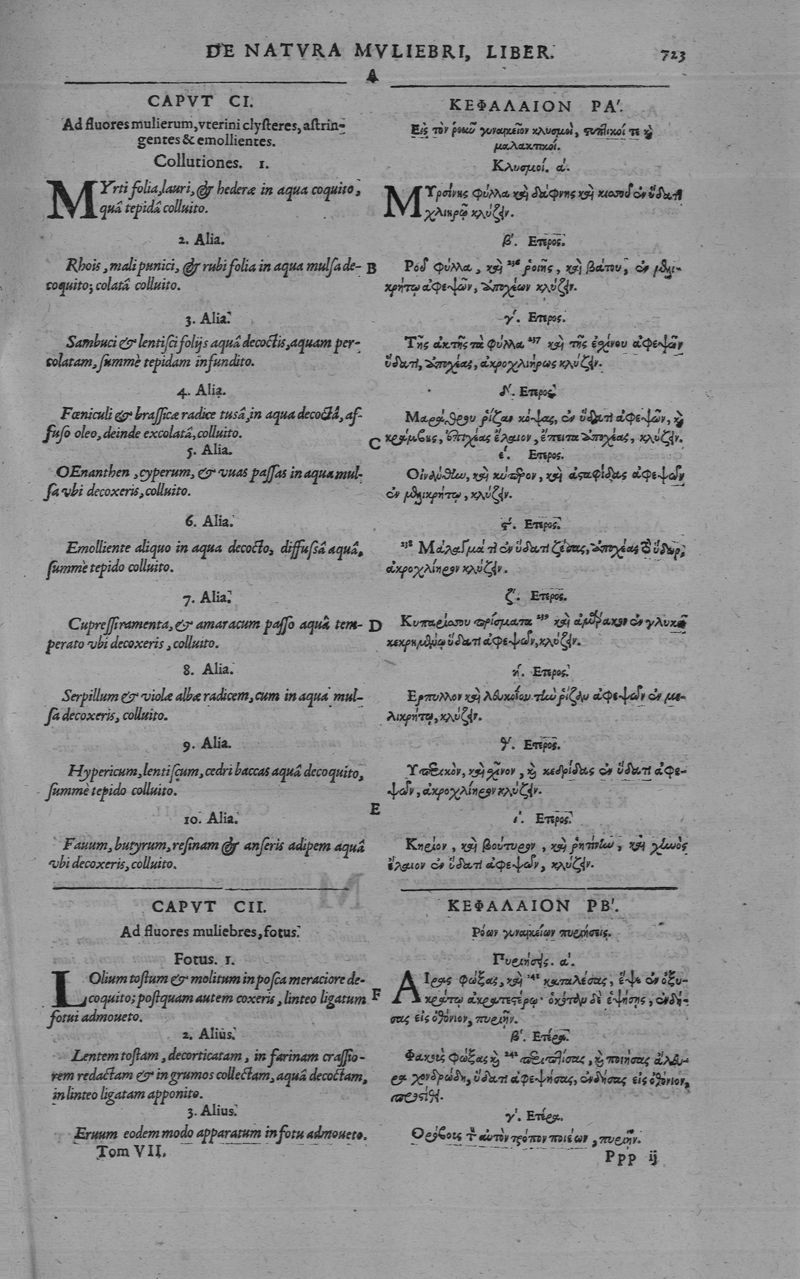 DE NATVRA MVLIEBRI, LIBER.
723
A
CAPVT CI.
Ad fluores mulierum, vterini clysteres, astrin-
gentes & emollientes.
Collutiones. 1.
MYrti folia, lauri, & hederæ in aqua coquito,
quâ tepidâ colluito.
2. Alia.
Rhois, mali punici, & rubi folia in aqua mulsa de-
coquito; colatâ colluito.
3. Alia.
Sambuci & lentisci folijs aquâ decoctis, aquam per-
colatam, summè tepidam infundito.
4. Alia.
Fœniculi & brassicæ radice tusâ, in aqua decoctâ, af-
fuso oleo, deinde excolatâ, colluito.
5. Alia.
OEnanthen, cyperum, & vuas passas in aqua mul-
sa vbi decoxeris, colluito.
6. Alia.
Emolliente aliquo in aqua decocto, diffusâ aquâ,
summè tepido colluito.
7. Alia.
Cupressi ramenta, & amaracum passo aquâ tem-
perato vbi decoxeris, colluito.
8. Alia.
Serpillum & violæ albæ radicem, cum in aqua mul-
sa decoxeris, colluito.
9. Alia.
Hypericum, lentiscum, cedri baccas aquâ decoquito,
summè tepido colluito.
10. Alia.
Fauum, butyrum, resinam & anseris adipem aquâ
vbi decoxeris, colluito.
CAPVT CII.
Ad fluores muliebres, fotus.
Fotus. 1.
LOlium tostum & molitum in posca meraciore de-
coquito; postquam autem coxeris, linteo ligatum
fotui admoueto.
2. Alius.
Lentem tostam, decorticatam, in farinam crassio-
rem redactam & in grumos collectam, aquâ decoctam,
in linteo ligatam apponito.
3. Alius.
Eruum eodem modo apparatum in fotu admoueto.
Tom VII.
B
C
D
E
F
ΚΕΦΑΛΑΙΟΝ ΡΑ΄.
Εἰς τὸν ῥοῦν γυναικεῖον κλυσμοὶ, στυπτικοί τε καὶ
μαλακτικοί.
Κλυσμοί. α΄.
ΜΥρσίνης φύλλα καὶ δάφνης καὶ κισσοῦ ἐν ὕδατι
χλιαρῷ κλύζειν.
β΄. Ετερος.
Ροῦ φύλλα, καὶ 236 ῥοιῆς, καὶ βάτου, ἐν μελι-
κρήτῳ ἀφεψῶν, ἀποχέων κλύζειν.
γ΄. Ετερος.
Τῆς ἀκτῆς τὰ φύλλα 237 καὶ τῆς ἐχίνου ἀφεψῶν
ὕδατι, ἀποχέας, ἀκροχλιήρως κλύζειν.
δ΄. Ετερος.
Μαράθρου ῥίζαν κόψας, ἐν ὕδατι ἀφεψῶν, καὶ
κράμβης, ἐπιχέας ἔλαιον, ἔπειτα ἀποχέας, κλύζειν.
ε΄. Ετερος.
Οἰνάνθην, καὶ κύπερον, καὶ ἀσταφίδας ἀφεψῶν
ἐν μελικρήτῳ, κλύζειν.
ϛ΄. Ετερος.
238 Μάλαγμά τι ἐν ὕδατι ζέσας, ἀποχέας τὸ ὕδωρ,
ἀκροχλίηρον κλύζειν.
ζ΄. Ετερος.
Κυπαρίσσου πρίσματα 239 καὶ ἀμάρακον ἐν γλυκεῖ
κεκρημένῳ ὕδατι ἀφεψῶν, κλύζειν.
η΄. Ετερος.
Ερπυλλον καὶ λευκοΐου τὴν ῥίζαν ἀφεψῶν ἐν με-
λικρήτῳ, κλύζειν.
θ΄. Ετερος.
Υπερικὸν, καὶ σχῖνον, καὶ κεδρίδας ἐν ὕδατι ἀφε-
ψῶν, ἀκροχλίηρον κλύζειν.
ι΄. Ετερος.
Κηρίον, καὶ βούτυρον, καὶ ῥητίνην, καὶ χηνὸς
ἔλαιον ἐν ὕδατι ἀφεψῶν, κλύζειν.
ΚΕΦΑΛΑΙΟΝ ΡΒ΄.
Ρόων γυναικείων πυριήσεις.
Πυριήσεις. α΄.
ΑΙρας φώξας, καὶ 241 καταλέσας, ἕψε ἐν ὀξυ-
κράτῳ ἀκρατεστέρῳ· ὁκόταν δὲ ἑψήσῃς, ἐνδή-
σας εἰς ὀθόνιον, πυριῆν.
β΄. Ετέρα.
Φακοὺς φώξας καὶ 242 περιπλίσας, καὶ ποιήσας ἄλευ-
ρα χονδρώδη, ὕδατι ἀφεψήσας, ἐνδήσας εἰς ὀθόνιον,
προστίθει.
γ΄. Ετέρα.
Ορόβους τὸν αὐτὸν τρόπον ποιέων, πυριῆν.
Ppp ij